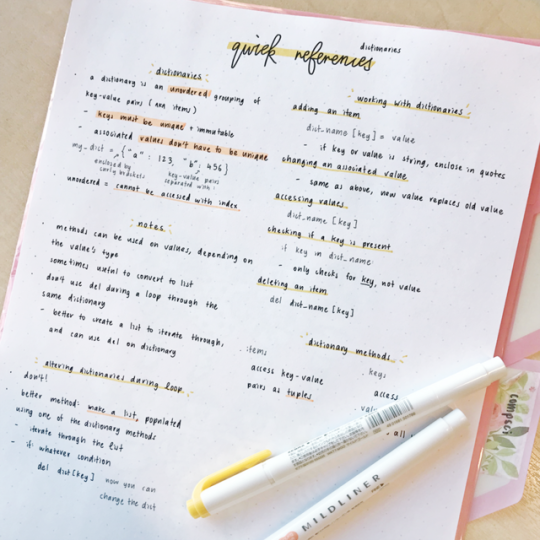 quick references
dictionaries
dictionaries
· a dictionary is an unordered grouping of
key-value pairs (aka items)
- keys must be unique + immutable
- associated values don't have to be unique
my_dist = {"a" : 123, "b": 456}
enclosed by
curly brackets
key-value pairs
separated with :
· unordered = cannot be accessed with index
notes
· methods can be used on values, depending on
the value's type
· sometimes useful to convert to list
· don't use del during a loop through the
same dictionary
- better to create a list to iterate through,
and can use del on dictionary
altering dictionaries during loop
· don't!
· better method: make a list, populated
using one of the dictionary methods
- iterate through the list
- if whatever condition
del dist[key]
now you can
change the dist
working with dictionaries
adding an item
dist_name [key] = value
- if key or value is string, enclose in quotes
changing an associated value
- same as above, new value replaces old value
accessing values
dist_name [key]
checking if a key is present
if key in dist_name:
- only checks for key, not value
deleting an item
del dist_name [key]
dictionary methods
. items
access key-value
pairs as tuples
. keys
access
- all
compact
MILDLINER